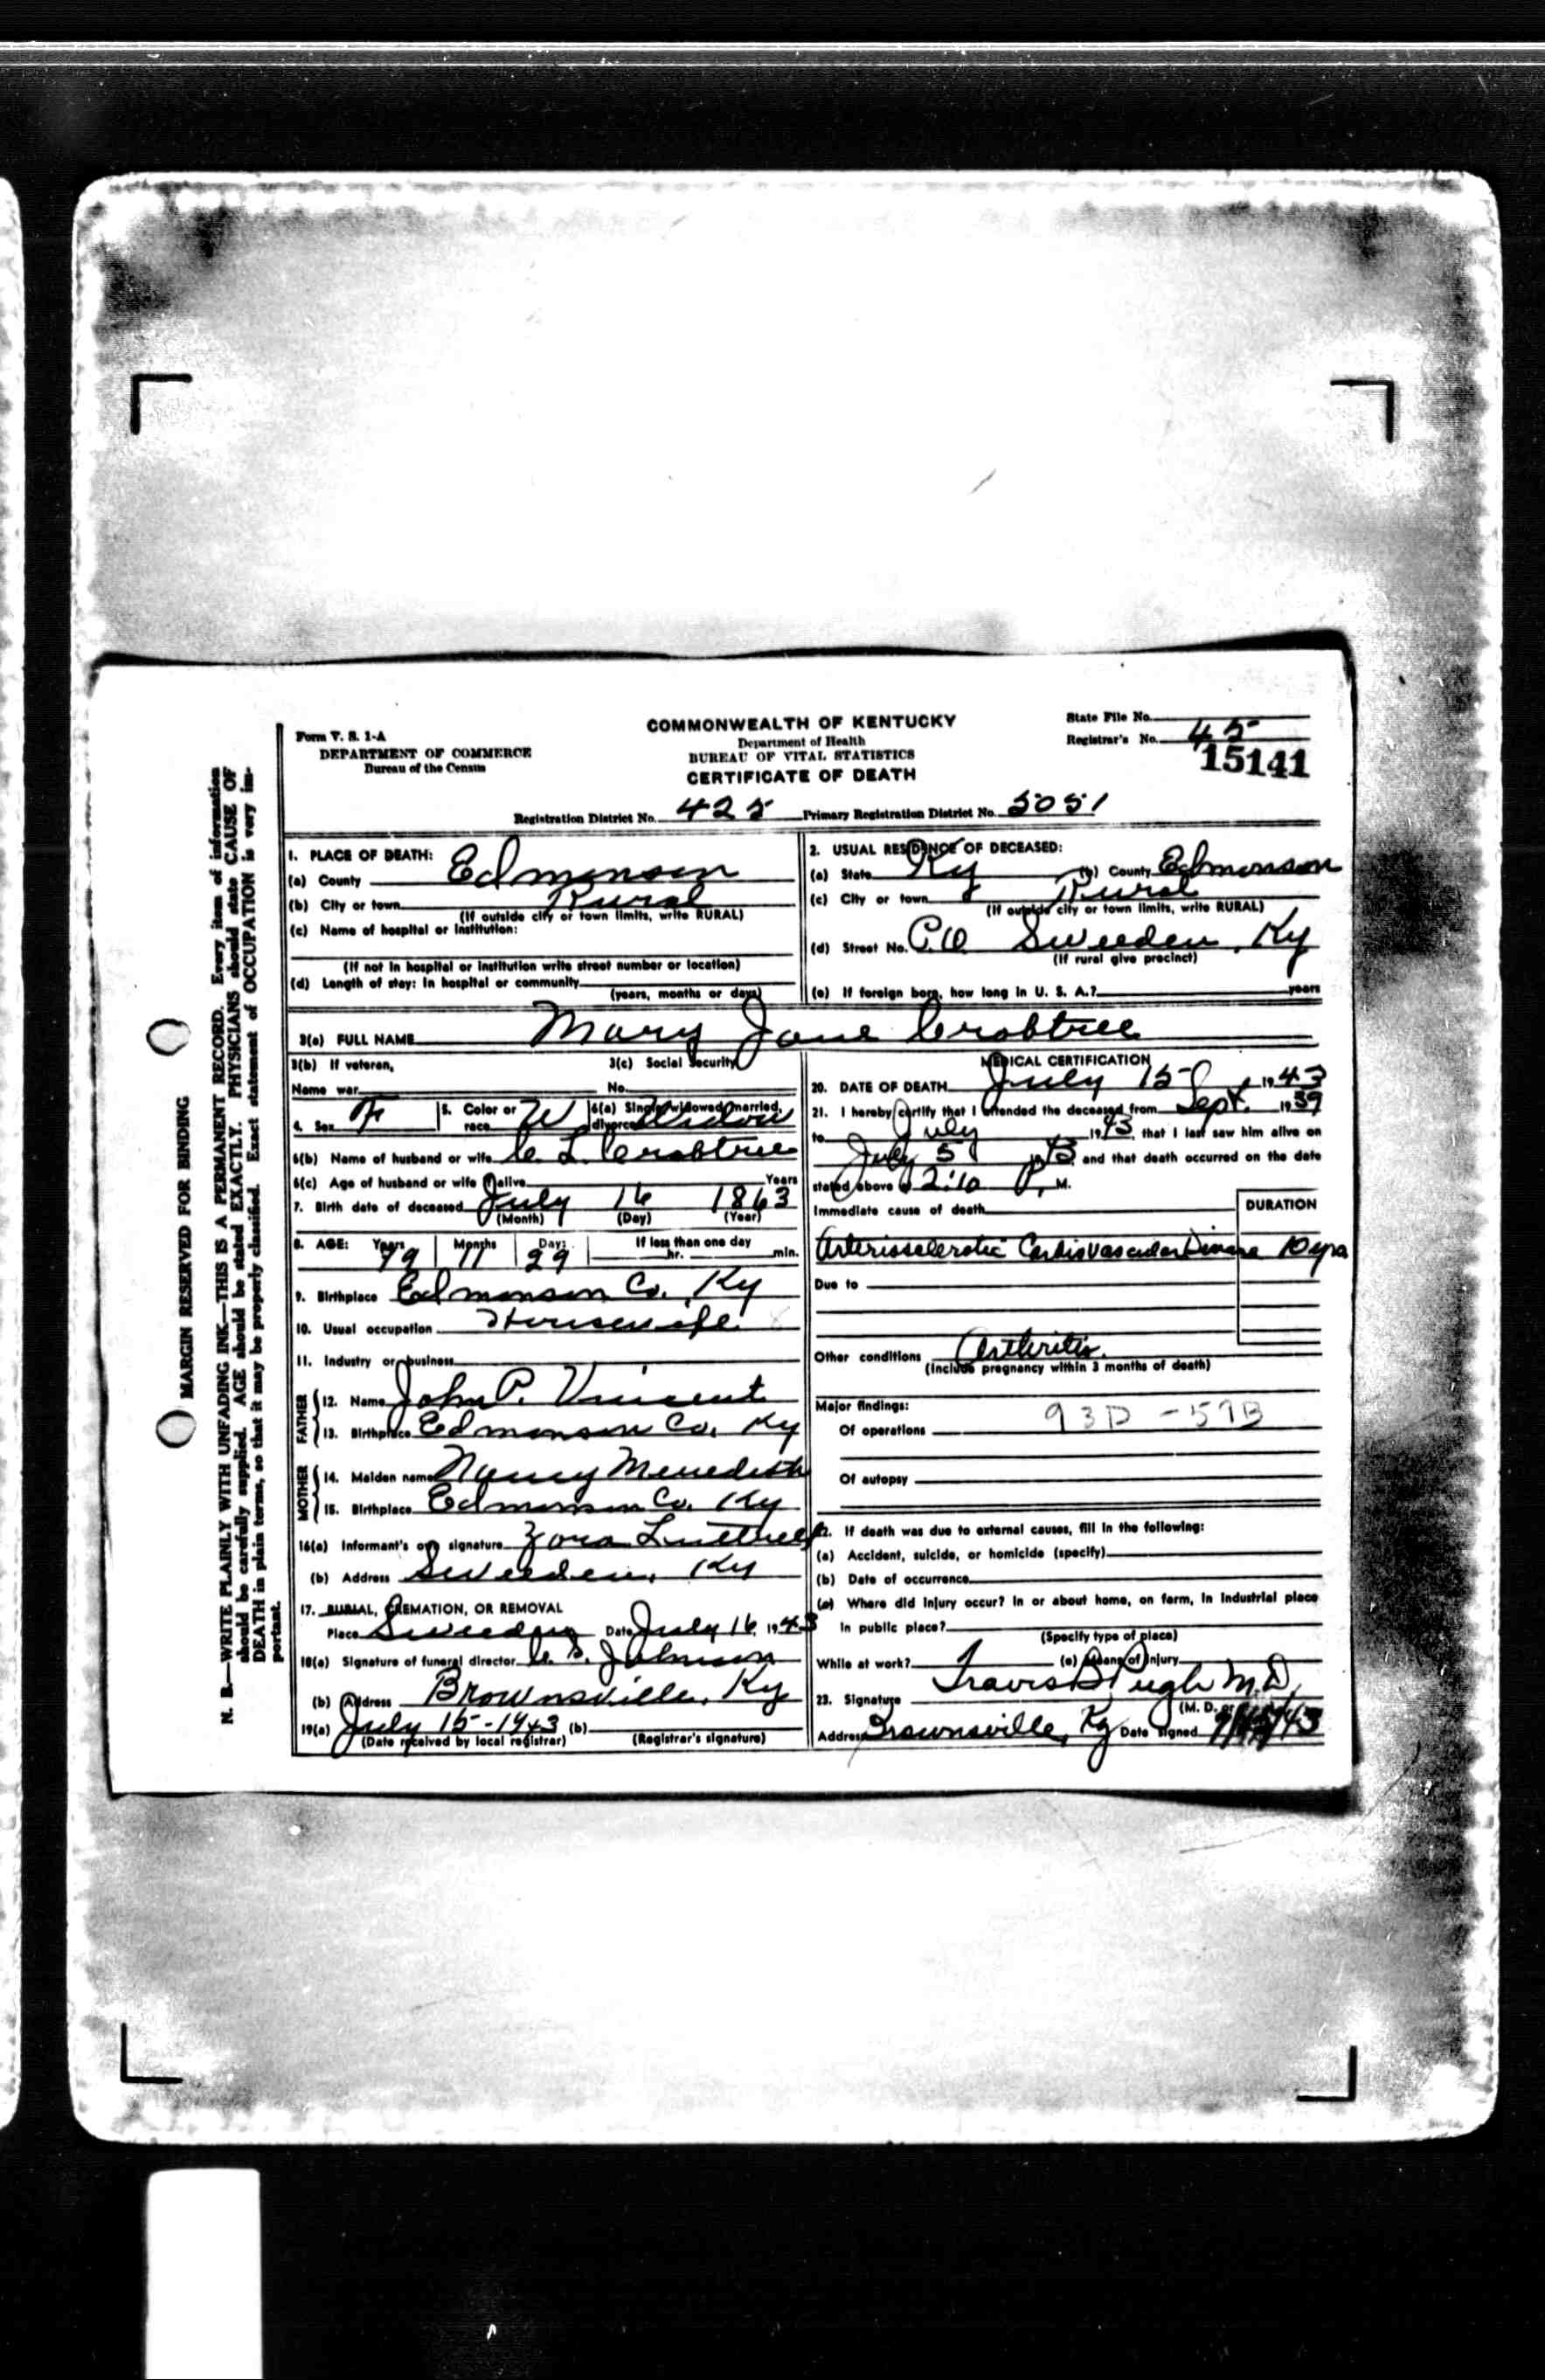 N. B.—WRITE PLAINLY WITH UNFADING INK—THIS IS A PERMANENT RECORD. Every item of information
should be carefully supplied. AGE should be stated EXACTLY. PHYSICIANS should state CAUSE OF
DEATH in plain terms, so that it may be properly classified. Exact statement of OCCUPATION is very im-
portant.
MARGIN RESERVED FOR BINDING
Form V. S. 1-A
DEPARTMENT OF COMMERCE
Bureau of the Census
COMMONWEALTH OF KENTUCKY
Department of Health
BUREAU OF VITAL STATISTICS
CERTIFICATE OF DEATH
State File No.
Registrar's No. 45
15141
Registration District No. 425 Primary Registration District No. 5051
1. PLACE OF DEATH:
(a) County Edmonson
(b) City or town Rural
(If outside city or town limits, write RURAL)
(c) Name of hospital or institution:
(If not in hospital or institution write street number or location)
(d) Length of stay: In hospital or community
(years, months or days)
2. USUAL RESIDENCE OF DECEASED:
(a) State Ky (b) County Edmonson
(c) City or town Rural
(If outside city or town limits, write RURAL)
(d) Street No. P.O Sweeden, Ky
(If rural give precinct)
(e) If foreign born, how long in U. S. A.? years
3(a) FULL NAME Mary Jane Crabtree
3(b) If veteran,
Name war
3(c) Social Security
No.
4. Sex F
5. Color or race W
6(a) Single, widowed, married, divorced Widow
6(b) Name of husband or wife C. L. Crabtree
6(c) Age of husband or wife if alive Years
7. Birth date of deceased July 16 1863
(Month) (Day) (Year)
8. AGE: Years 79 Months 11 Days 29 If less than one day
hr. min.
9. Birthplace Edmonson Co., Ky
10. Usual occupation Housewife
11. Industry or business
FATHER
12. Name John P. Vincent
13. Birthplace Edmonson Co. Ky
MOTHER
14. Maiden name Nancy Meredith
15. Birthplace Edmonson Co. Ky
16(a) Informant's own signature Zora Luttrell
(b) Address Sweeden, Ky
17. BURIAL, CREMATION, OR REMOVAL
Place Sweeden Date July 16 1943
18(a) Signature of funeral director Johnson
(b) Address Brownsville, Ky
19(a) July 15-1943 (b)
(Date received by local registrar) (Registrar's signature)
MEDICAL CERTIFICATION
20. DATE OF DEATH July 15 1943
21. I hereby certify that I attended the deceased from Sept. 1939
to July 1943, that I last saw him alive on
July 5 1943 and that death occurred on the date
stated above 2:10 P. M.
Immediate cause of death
DURATION
Arteriosclerotic Cardiovascular Disease 10 yrs
Due to
Other conditions Arthritis
(Include pregnancy within 3 months of death)
Major findings:
93D -59B
Of operations
Of autopsy
22. If death was due to external causes, fill in the following:
(a) Accident, suicide, or homicide (specify)
(b) Date of occurrence
(c) Where did injury occur? In or about home, on farm, in industrial place
in public place?
(Specify type of place)
While at work? (e) Means of injury
23. Signature Travis B Pugh M.D.
(M. D. or
Address Brownsville, Ky Date signed